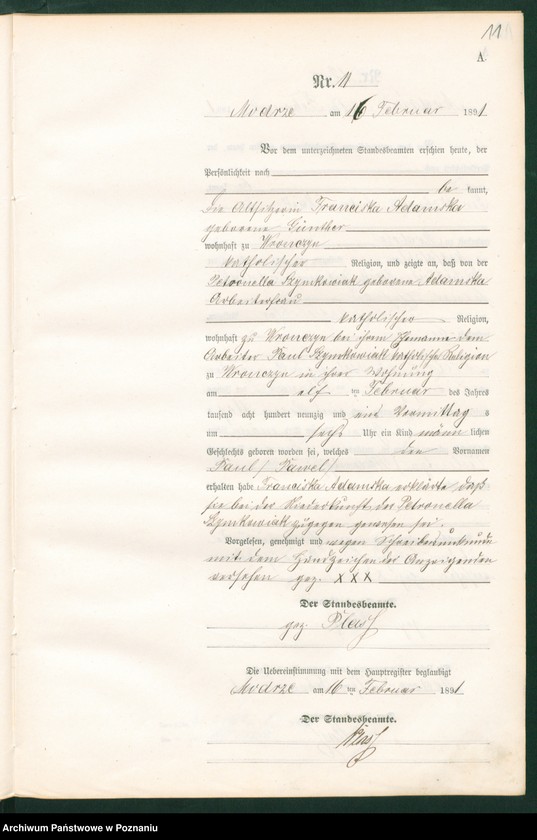 11
A
Nr. 11
Modrze am 16 Februar 1891
Vor dem unterzeichneten Standesbeamten erschien heute, der
Persönlichkeit nach
be kannt,
die Altsitzerin Franciska Adamska
geborene Günther
wohnhaft zu Wronczyn
katholischer Religion, und zeigte an, daß von der
Petronella Szymkowiak geborene Adamska
Arbeiterfrau
katholischer Religion,
wohnhaft zu Wronczyn bei ihrem Ehemanne dem
Arbeiter Paul Szymkowiak katholischer Religion
zu Wronczyn in ihrer Wohnung
am elf ten Februar des Jahres
tausend acht hundert neunzig und eins Vormittag s
um sechs Uhr ein Kind männ lichen
Geschlechts geboren worden sei, welches den Vornamen
Paul / Pawel /
erhalten habe Franciska Adamska erklärte daß
sie bei der Niederkunft der Petronella
Szymkowiak zugegen gewesen sei.
Vorgelesen, genehmigt und wegen Schreibensunkunde
mit dem Handzeichen der Anzeigenden
versehen gez. XXX
Der Standesbeamte.
gez.
Die Uebereinstimmung mit dem Hauptregister beglaubigt
Modrze am 16 ten Februar 1891.
Der Standesbeamte.
Archiwum Państwowe w Poznaniu